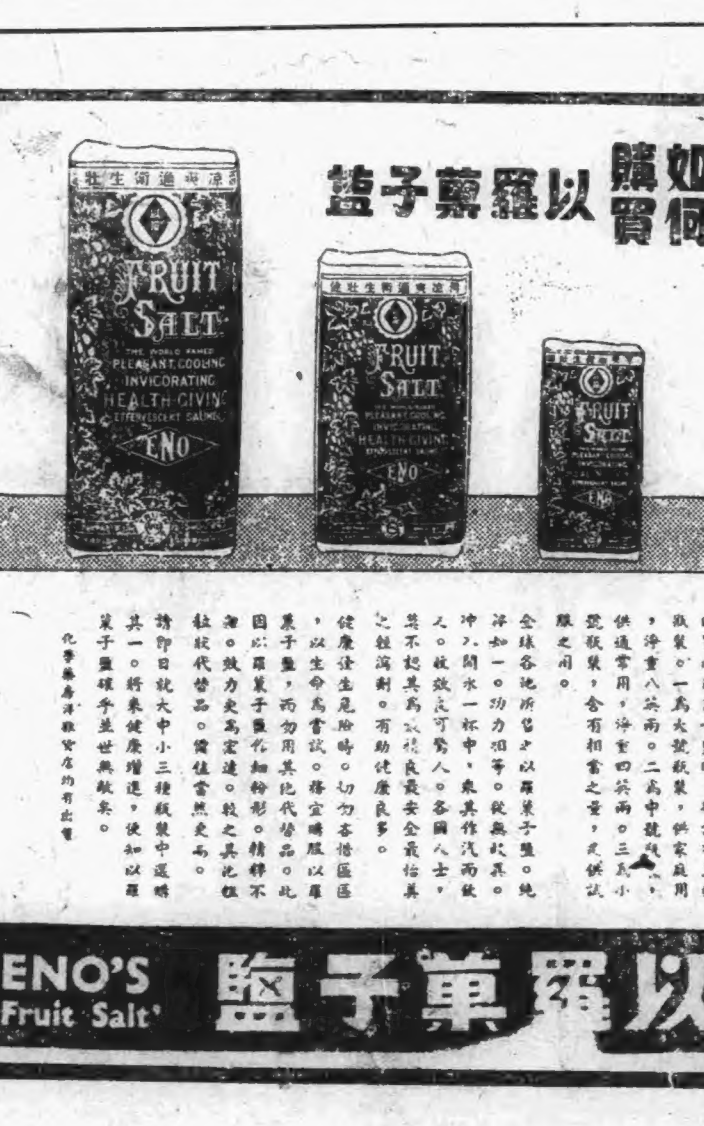 如何
購買
以羅菓子鹽
凉爽適衛生壯
FRUIT
SALT
THE WORLD FAMED
PLEASANT, COOLING
INVIGORATING
HEALTH-GIVING
EFFERVESCENT SALINE
ENO
爽適衛生壯健
FRUIT
SALT
THE WORLD FAMED
PLEASANT, COOLING
INVIGORATING
HEALTH-GIVING
EFFERVESCENT SALINE
ENO
FRUIT
SALT
PLEASANT, COOLING
INVIGORATING
ENO
瓶裝。一爲大號瓶裝,供家庭用
,淨重八英兩。二爲中號瓶,
供通常用,淨重四英兩。三爲小
號瓶裝,含有相當之量,足供試
服之用。
全球各地所售之以羅菓子鹽。純
淨如一。功力相等。從無歧異。
冲入開水一杯中,乘其作汽而飲
之。收效良可驚人。各國人士,
莫不認其爲良最安全最怡美
之輕瀉劑。有助健康良多。
健康發生危險時。切勿吝惜區區
,以生命爲嘗試。務宜購服以羅
菓子鹽,而勿用其他代替品。此
因以羅菓子鹽作細粉形。精粹不
。效力更爲宏速。較之其他粗
粒狀代替品。價值當然更高。
請即日就大中小三種瓶裝中選購
其一。將來健康增進,便知以羅
菓子鹽確乎並世無敵矣。
化學藥房洋雜貨店均有出售
ENO'S
Fruit Salt'
以羅菓子鹽